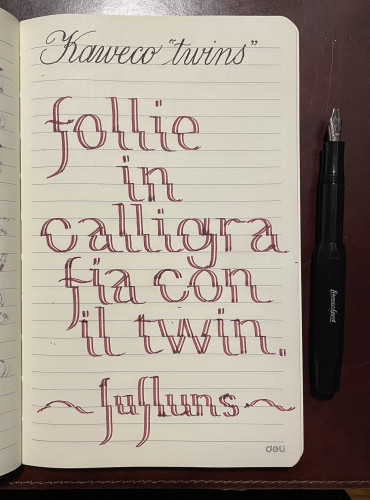 Kaweco "twins"
follie
in
calligra
fia con
il twin.
~ fufluns ~
deli
Kaweco Sport